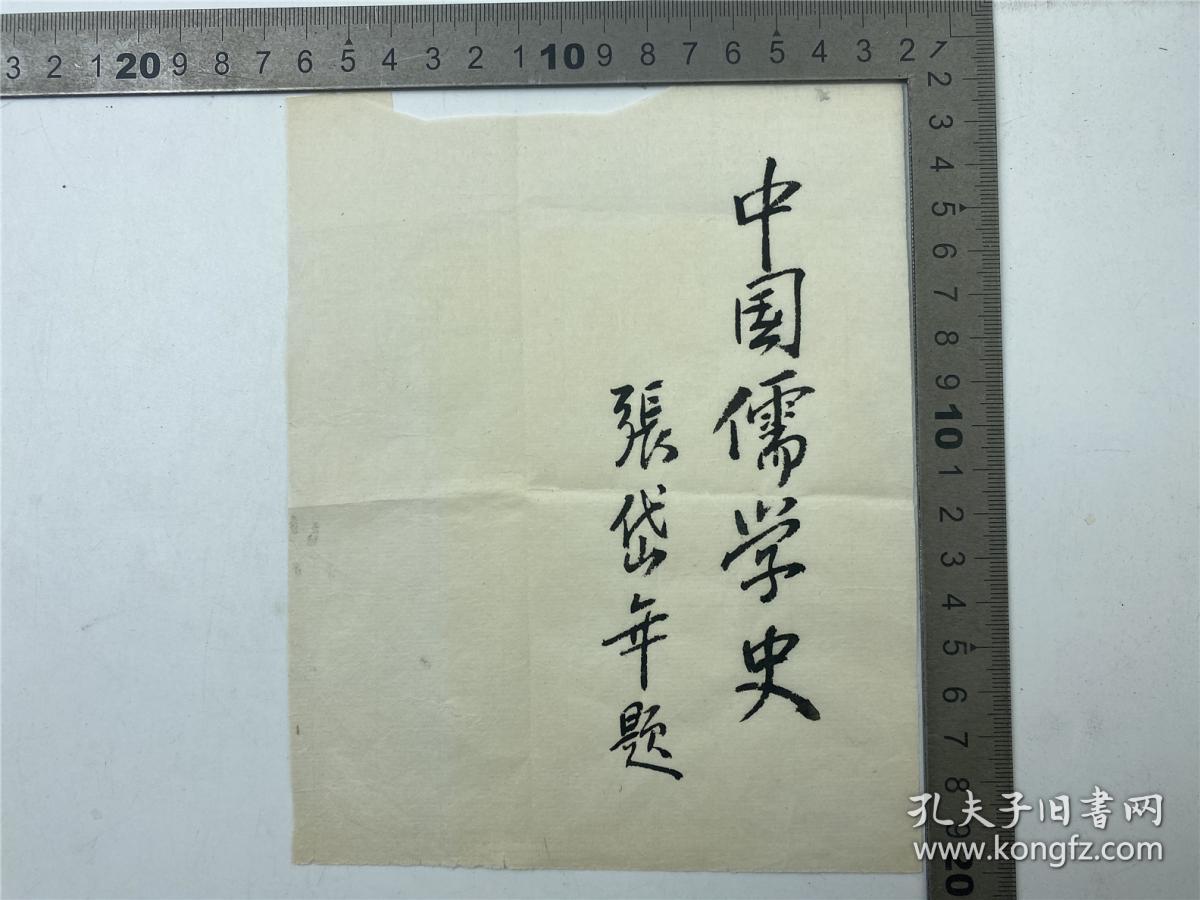 中国儒学史
張岱年题
3 2 1 20 9 8 7 6 5 4 3 2 1 10 9 8 7 6 5 4 3 2 1
2 3 4 5 6 7 8 9 10 1 2 3 4 5 6 7 8 9 20
孔夫子旧書网
www.kongfz.com